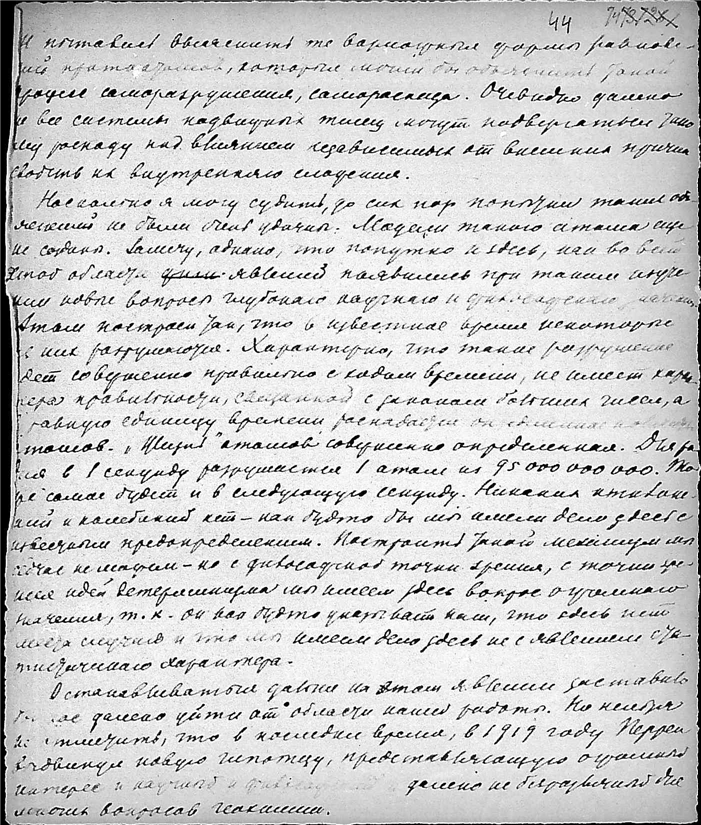 44
и пытались выяснить те вероятные формы равнове-
сий протоатомов, которые могли бы объяснить такой
процесс саморазрушения, самораспада. Очевидно далеко
не все системы подвижных телец могут подвергаться тако
му распаду под влиянием независимых от внешних причин
свойств их внутреннего сложения.
Насколько я могу судить, до сих пор попытки таких объ
яснений не были очень удачны. Модели такого атома еще
не созданы. Замечу, однако, что попутно и здесь, как во всей
этой области явлений появились при таком изуче
нии новые вопросы глубокого научного и философского значения.
Атом построен так, что в известное время некоторые
из них разрушаются. Характерно, что такие разрушение
идет совершенно правильно с ходом времени, не имеет харак
тера правильности, связанной с законом больших чисел, а
в равную единицу времени распадается определенное количество
атомов. „Жизнь" атомов совершенно определенная. Для ра
дия в 1 секунду разрушается 1 атом из 95 000 000 000. То
же самое будет и в следующую секунду. Никаких отклоне-
ний и колебаний нет – как будто бы мы имели дело здесь с
извечным предопределением. Построить такой механизм мы
сейчас не можем – но с философской точки зрения, с точки зре-
ния идей детерминизма мы имеем здесь вопрос огромного
значения, т. к. он как будто указывает нам, что здесь нет
места случая и что мы имеем дело здесь не с явлением ста-
тистического характера.
Останавливаться дальше на этом явлении заставило
бы нас далеко уйти от области нашей работы. Но нельзя
не отметить, что в последнее время, в 1919 году Перрен
выдвинул новую гипотезу, представляющую огромный
интерес и научный и философский и далеко не безразличный для
многих вопросов геохимии.